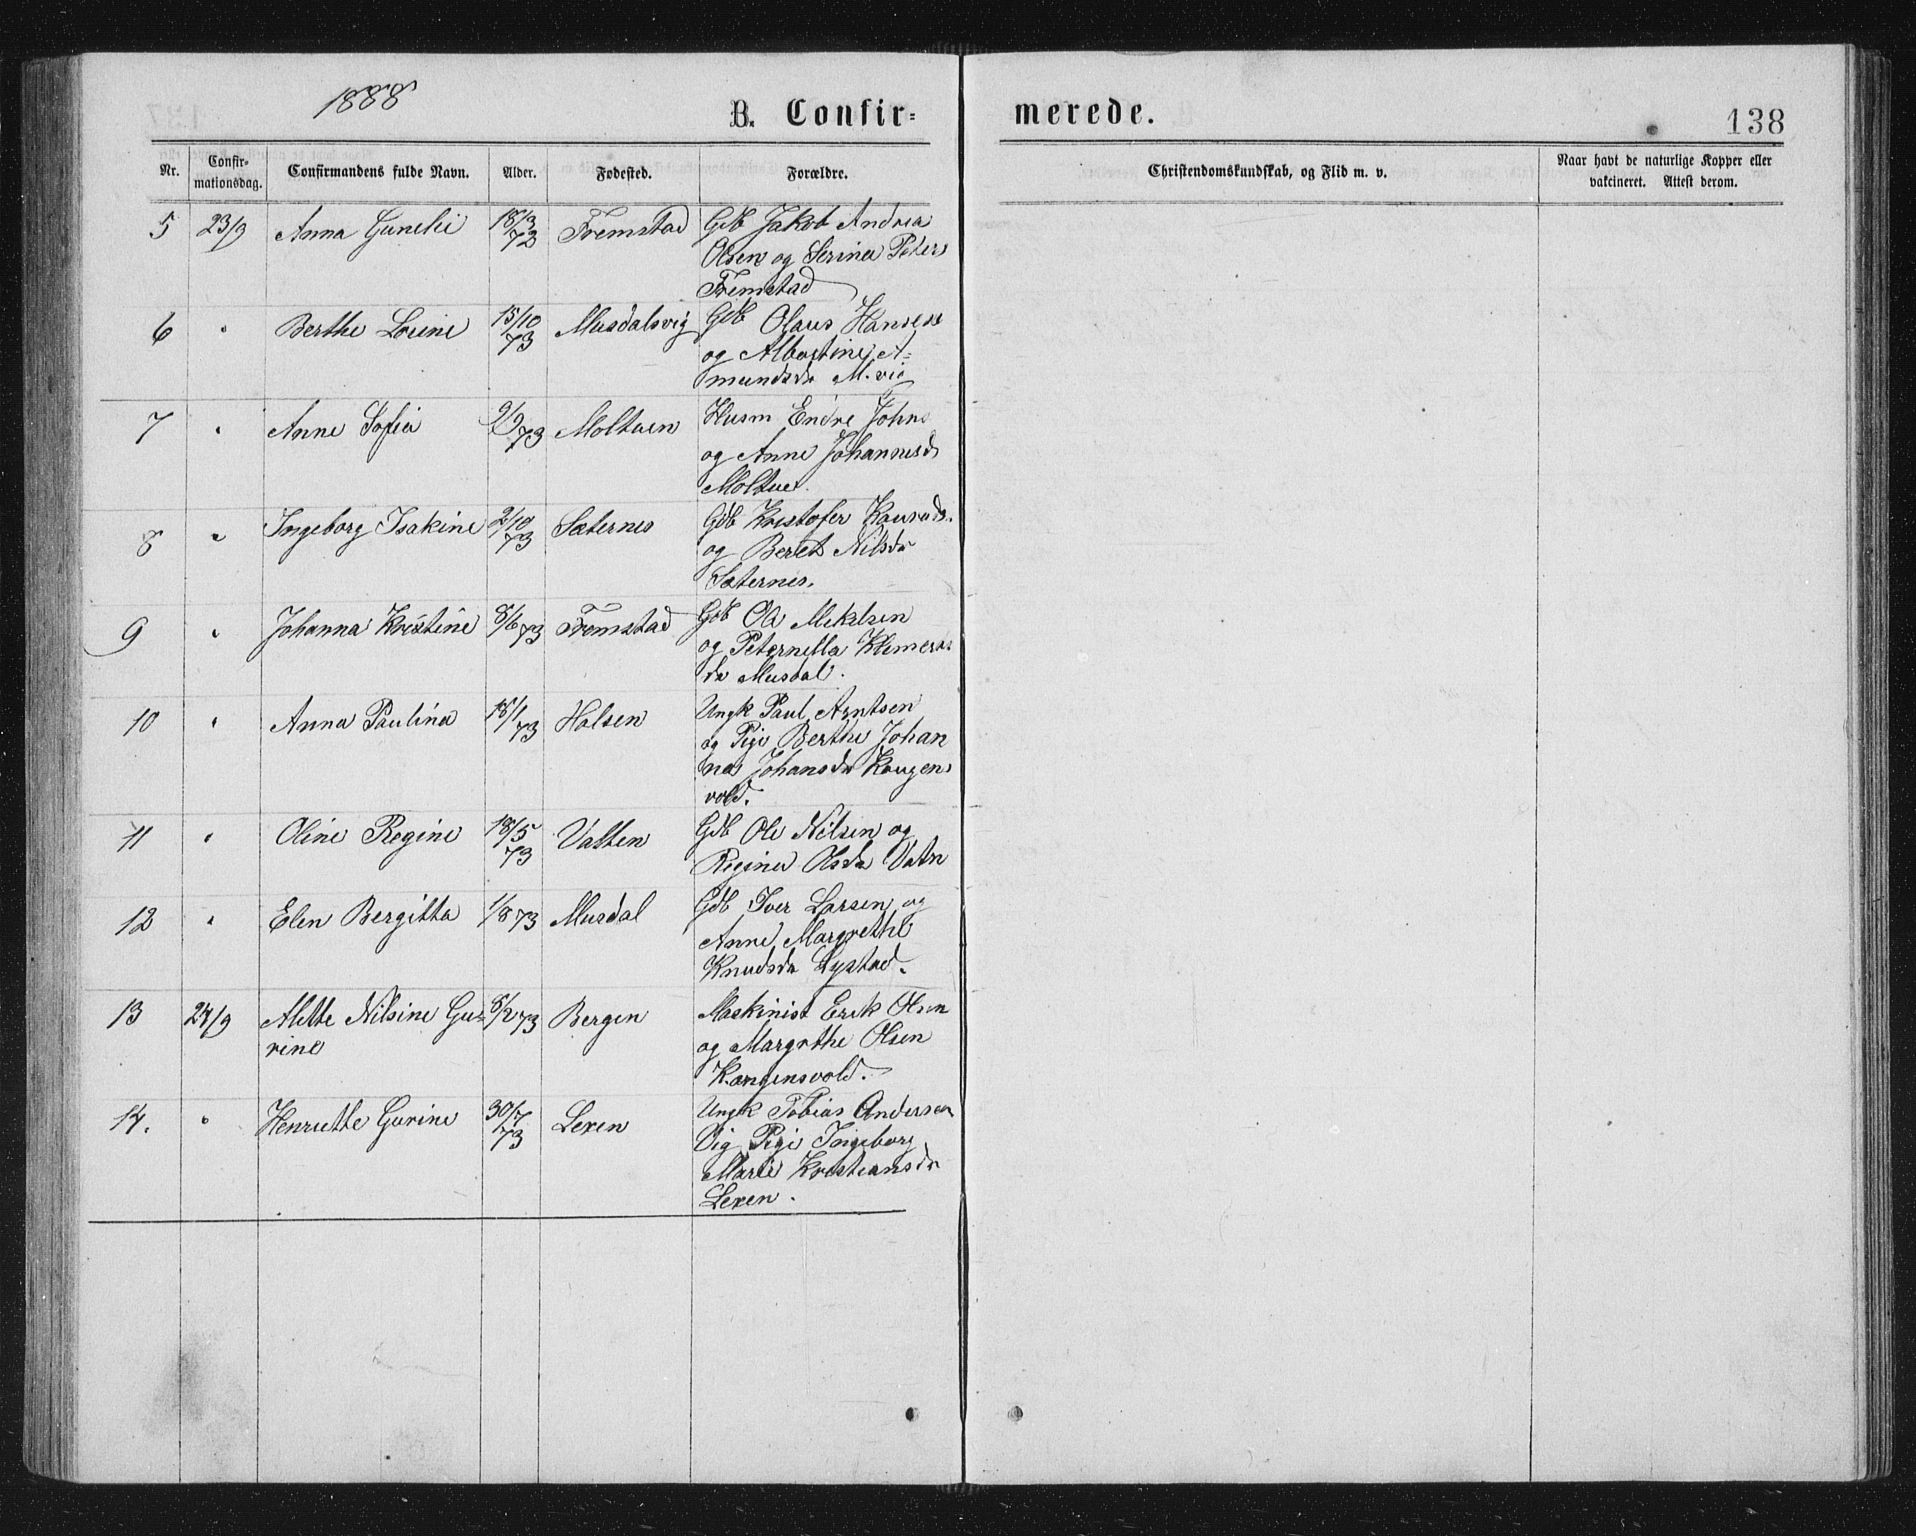 1888
B. Confir=
merede.
138
Nr.
Confir-
mationsdag.
Confirmandens fulde Navn.
Alder.
Fødested.
Forældre.
Christendomskundskab, og Flid m. v.
Naar havt de naturlige Kopper eller
vakcineret. Attest derom.
5 23/9 Anna 18/3 72 Fremstad Gdb Jakob Andrea
Olsen og Serina Peters
Fremstad
6 " Berthe Lovine 15/10 73 Musdalsvig Gdb Olaus Hansen
og Albertine A=
mundsdr M.vig
7 " Anne Sofia 9/9 73 Moltuen Husm Endre Johns
og Anne Johannesd
Moltue.
8 " Ingeborg Isakine 2/10 73 Sæternes Gdb Kristofer
og Beret Nilsdr
Sæternes.
9 " Johanna Kristine 8/6 73 Fremstad Gdb Ole Mikelsen
og Peternella
dr Musdal.
10 " Anna Paulina 18/1 73 Halsen Ungk Paul Arntsen
og Pige Berthe Johan
na Johansdr Kongens
vold.
11 " Oline Regine 18/5 73 Vatten Gdb Ole Nilsen og
Regina Olsdr Vatn
12 " Elen Bergitta 1/8 73 Musdal Gdb Iver Larsen og
Anne Margrethe
Knudsdr Lystad.
13 24/9 Alette Nilsine Gu-
rine 8/2 73 Bergen Maskinist Erik Olsen
og Margrthe Olsen
Kongensvold.
14. " Henriette Gurine 30/7 73 Lexen Ungk Tobias Andersen
Vig Pige Ingeborg
Marie Kristiansdr
Lexen.